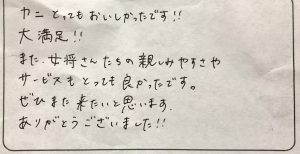 カニとってもおいしかったです!!
大満足!!
また、女将さんたちの親しみやすさや
サービスもとっても良かったです。
ぜひまた来たいと思います.
ありがとうございました!!